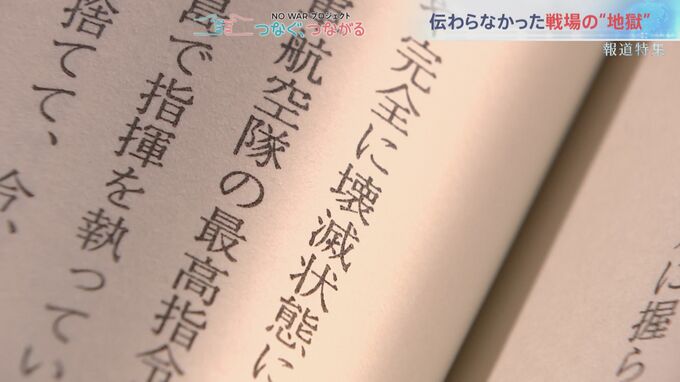 NO WAR プロジェクト
つなぐ、つながる
伝わらなかった戦場の“地獄”
報道特集
に握ら
完全に壊滅状態に
航空隊の最高指令
で指揮を執ってい
捨てて、今、